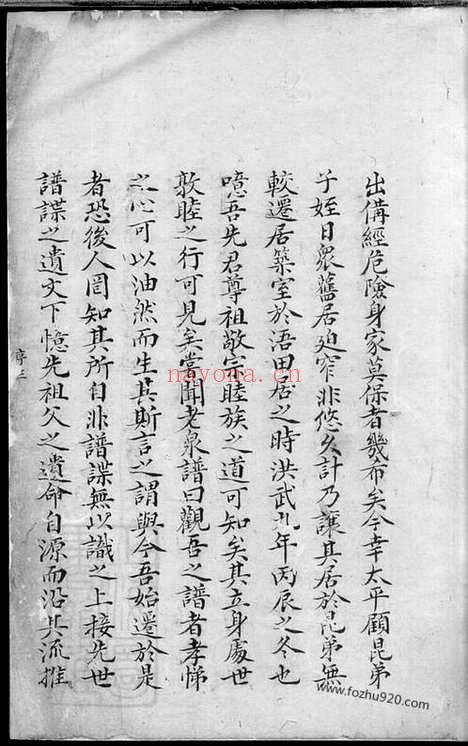 出備經危險身家莫保者幾布矣今幸太平顧昆弟
子姪日衆舊居迫窄非悠久計乃讓其居於昆弟無
較遷居築室於浯田居之時洪武九年丙辰之冬也
噫吾先君尊祖敬宗睦族之道可知矣其立身處世
敦睦之行可見矣嘗聞老泉譜曰觀吾之譜者孝悌
之心可以油然而生其斯言之謂與今吾始遷於是
者恐後人罔知其所自非譜諜無以識之上接先世
譜諜之遺文下憶先祖父之遺命自源而沿其流推
序三
nayona.cn
www.fozhu920.com